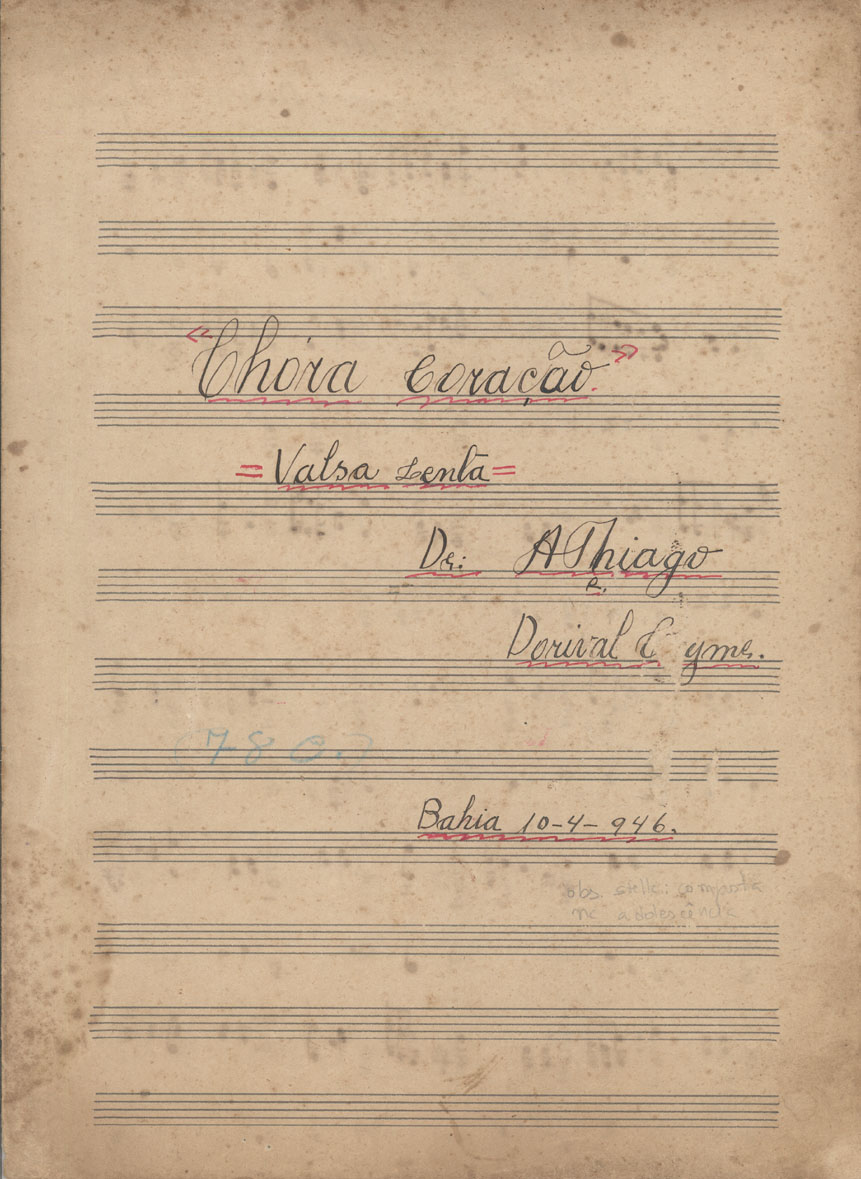 "Chora Coração."
= Valsa Lenta =
De: AThiago
e,
Dorival C yme.
(780.)
Bahia 10-4-946.
obs. stella: composta
na adolescência